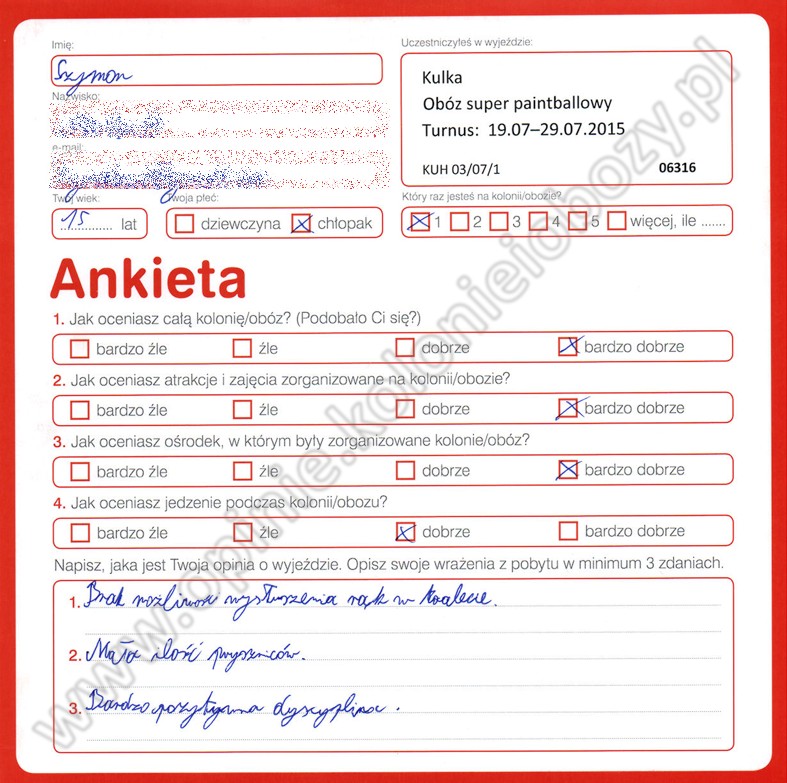 Imię:
Uczestniczyłeś w wyjeździe:
Szymon
Kulka
Obóz super paintballowy
Turnus: 19.07–29.07.2015
KUH 03/07/1 06316
Nazwisko:
e-mail:
Twój wiek: Twoja płeć:
Który raz jesteś na kolonii/obozie?
15 lat dziewczyna chłopak
1 2 3 4 5 więcej, ile .......
Ankieta
1. Jak oceniasz całą kolonię/obóz? (Podobało Ci się?)
bardzo źle źle dobrze bardzo dobrze
2. Jak oceniasz atrakcje i zajęcia zorganizowane na kolonii/obozie?
bardzo źle źle dobrze bardzo dobrze
3. Jak oceniasz ośrodek, w którym były zorganizowane kolonie/obóz?
bardzo źle źle dobrze bardzo dobrze
4. Jak oceniasz jedzenie podczas kolonii/obozu?
bardzo źle źle dobrze bardzo dobrze
Napisz, jaka jest Twoja opinia o wyjeździe. Opisz swoje wrażenia z pobytu w minimum 3 zdaniach.
1. Brak możliwość wysuszenia rąk w toalecie.
2. Mała ilość pryszniców.
3. Bardzo pozytywna dyscyplina.
www.opinie.kolonieiobozy.pl